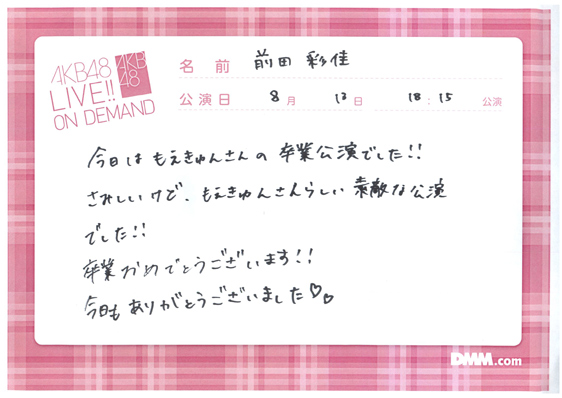 AKB48
LIVE!!
ON DEMAND
AKB
48
名前 前田 彩佳
公演日 8月 13日 18:15 公演
今日は もえきゅんさんの 卒業公演でした!!
さみしいけど、もえきゅんさんらしい 素敵な公演
でした!!
卒業おめでとうございます!!
今日も ありがとうございました♡♡
DMM.com